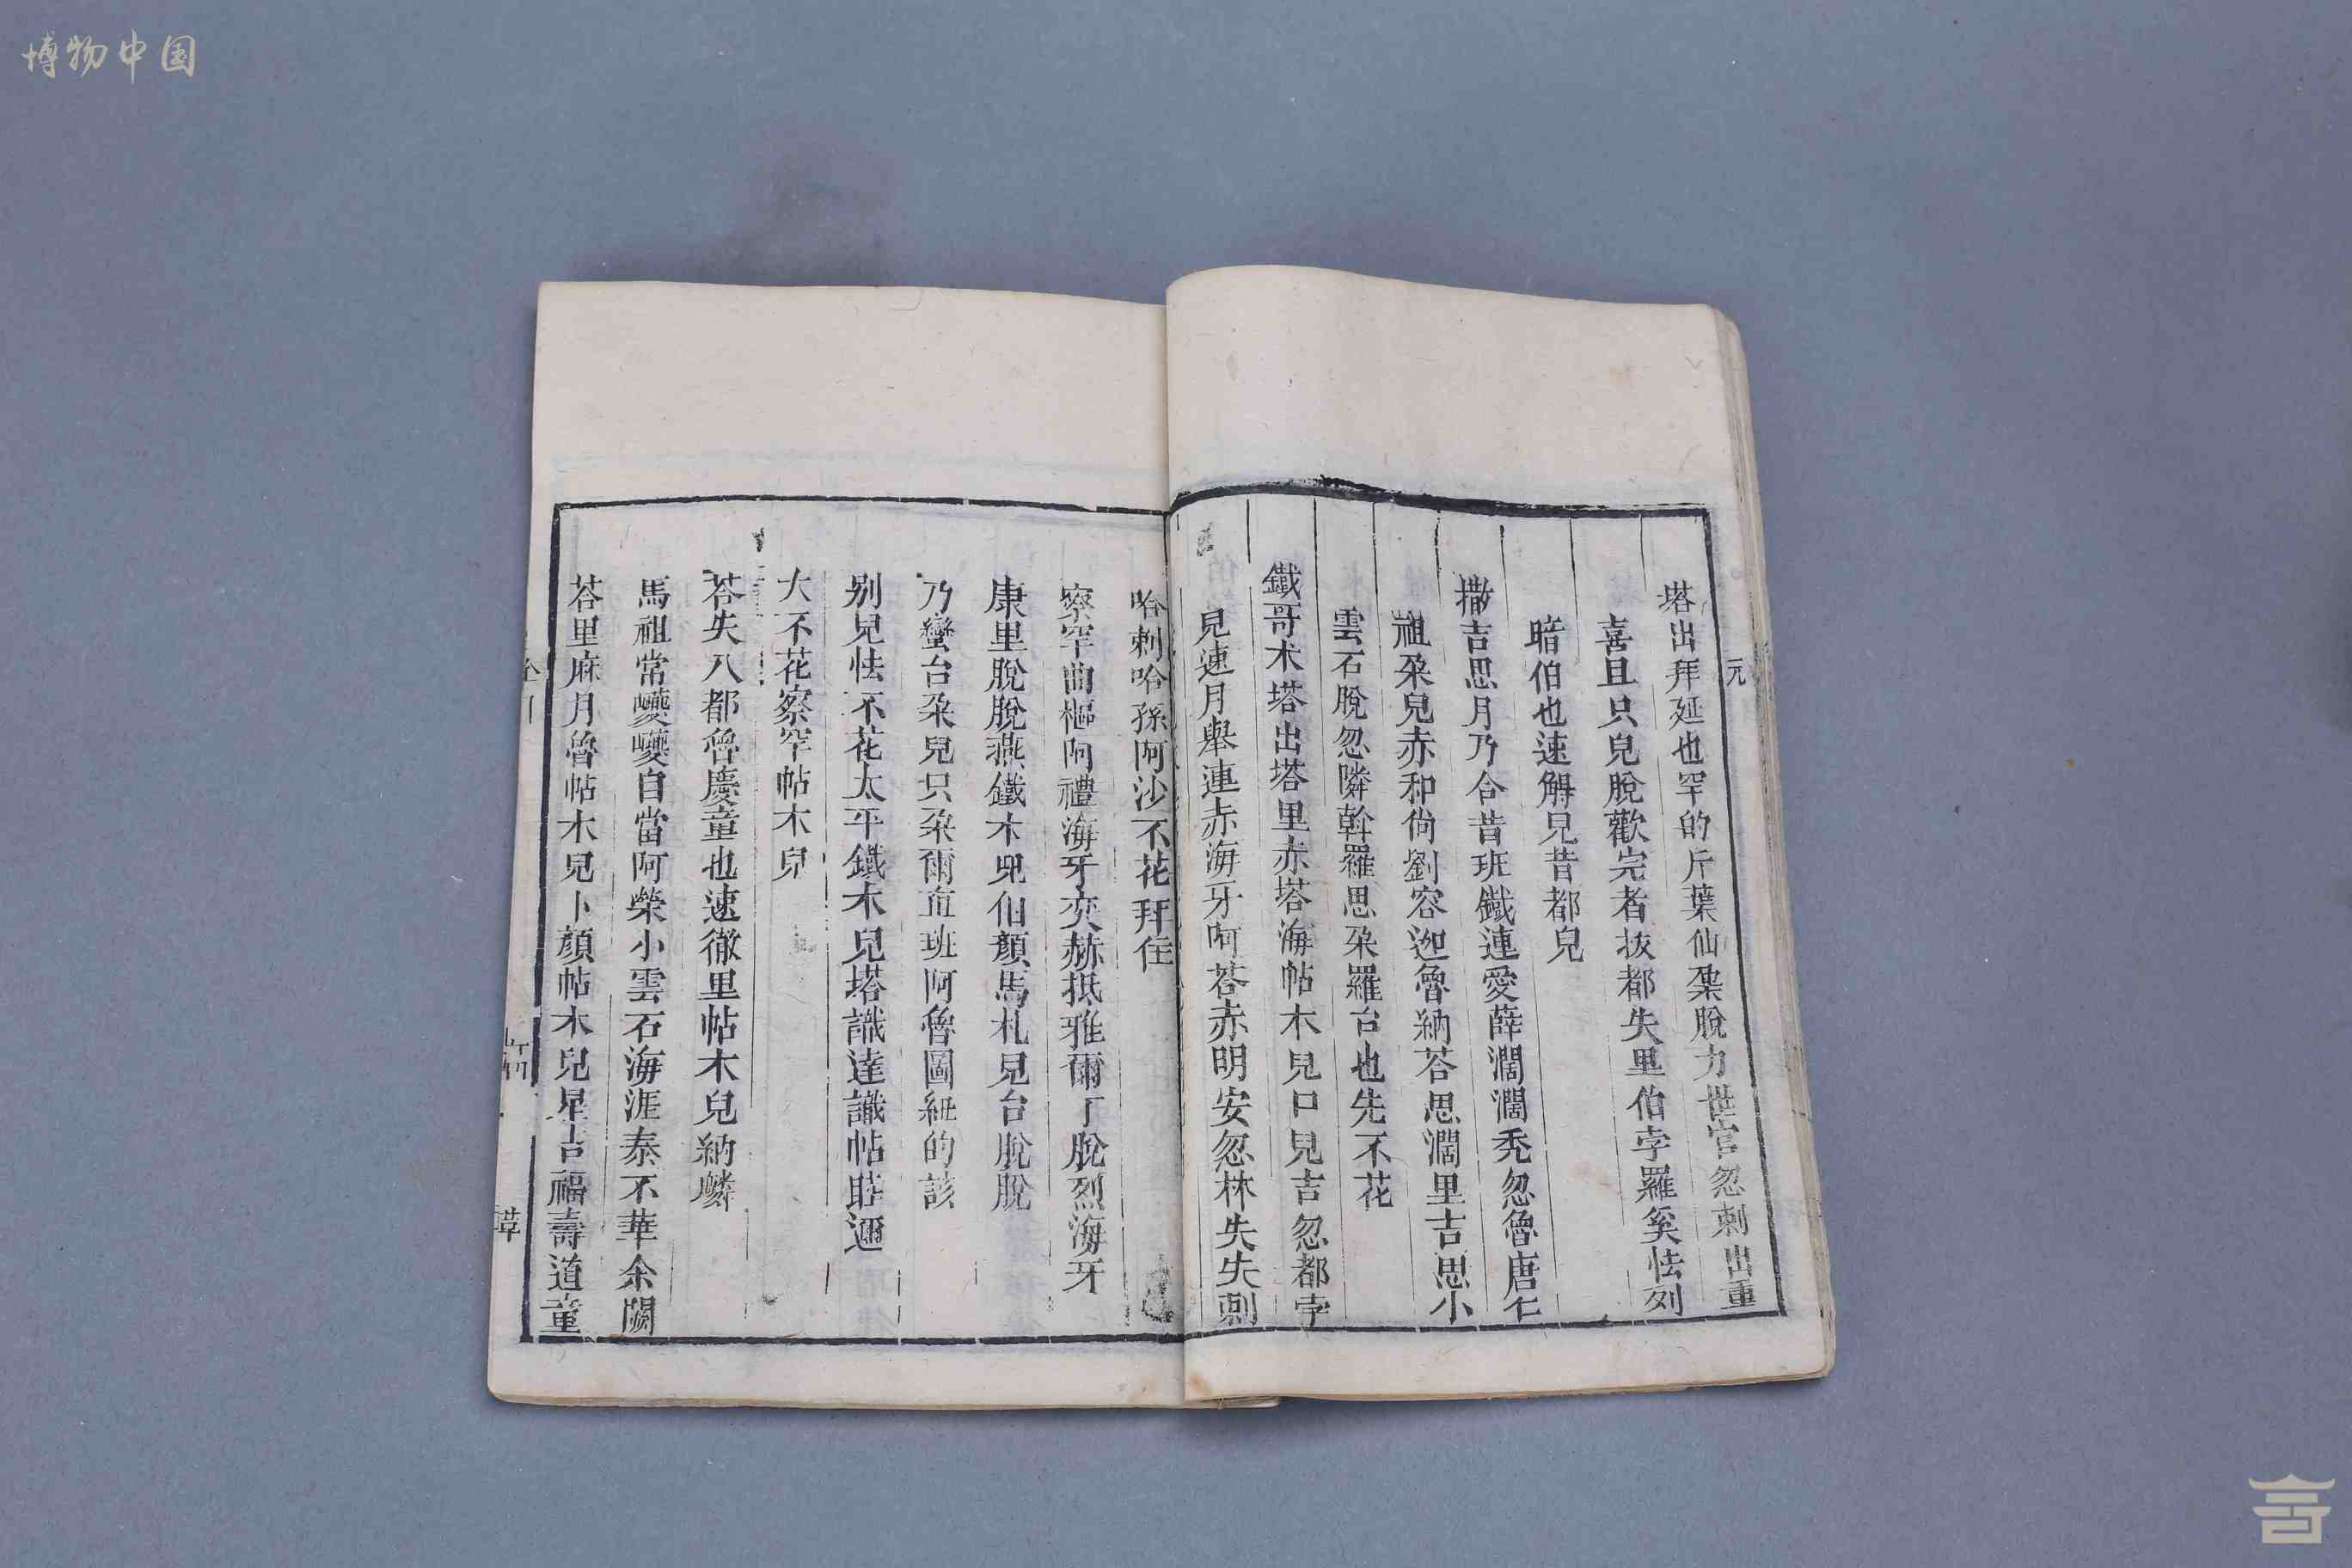 博物中国
元
塔出拜延也罕的斤葉仙鼐脫力世官忽剌出重
喜且只兒脫歡完者拔都失里伯孛羅奚怯列
暗伯也速䚟兒昔都兒
撒吉思月乃合昔班鐵連愛薛濶濶禿忽魯唐仁
祖朶兒赤和尙劉容迦魯納荅思濶里吉思小
雲石脫忽隣斡羅思朶羅台也先不花
鐵哥术塔出塔里赤塔海帖木兒口兒吉忽都孛
兒速月舉連赤海牙阿荅赤明安忽林失失剌
哈剌哈孫阿沙不花拜住
察罕曲樞阿禮海牙奕赫抵雅爾丁脫烈海牙
康里脫脫燕鐵木兒伯顏馬札兒台脫脫
乃蠻台朶兒只朶爾直班阿魯圖紐的該
别兒怯不花太平鐵木兒塔識達識帖睦邇
大不花察罕帖木兒
荅失八都魯慶童也速徹里帖木兒納麟
馬祖常巙巙自當阿榮小雲石海涯泰不華余闕
荅里麻月魯帖木兒卜顏帖木兒星吉福壽道童